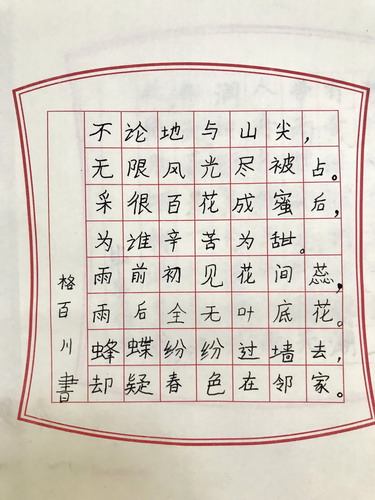 不论地与山尖，
无限风光尽被占。
采很百花成蜜后，
为谁辛苦为甜。
雨前初见花间蕊，
雨后全无叶底花。
蜂蝶纷纷过墙去，
却疑春色在邻家。
格百川書